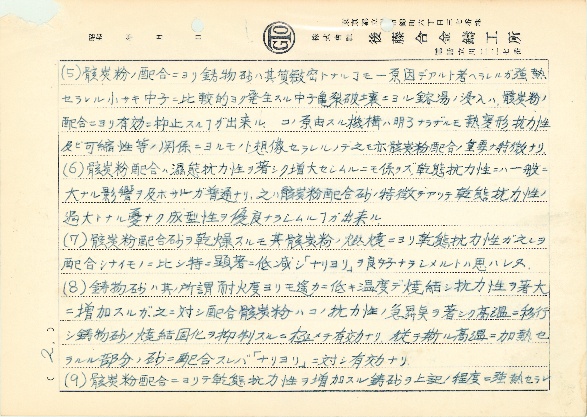 昭和 年 月 日
株式会社 後藤合金鋳工所
(5) 骸炭粉ノ配合ニヨリ鋳物砂ハ其質緻密トナルヿモ一原因デアルト考ヘラレルガ強熱
セラレル小サキ中子ニ比較的ヨク発生スル中子亀裂破壊ニヨル鎔湯ノ浸入ハ骸炭粉ノ
配合ニヨリ有効ニ抑止スルヿガ出来ル コノ原由スル機構ハ明ラナラデルモ熱変形抗力性
及ビ可縮性等ノ関係ニヨルモノト想像セラレルノデ之モ亦骸炭粉配合ノ重要ナ特徴ナリ
(6) 骸炭粉配合ハ湿態抗力性ヲ著シク増大セシムルニモ係ラズ乾態抗力性ニハ一般ニ
大ナル影響ヲ及ホサヌガ普通ナリ、之ハ骸炭粉配合砂ノ特徴デアリテ乾態抗力性ノ
過大トナル憂ナク成型性ヲ優良ナラシムルヿガ出来ル
(7) 骸炭粉配合砂ヲ乾燥スルモ其骸炭粉ノ燃焼ニヨリ乾態抗力性ガ之レヲ
配合シナイモノニ比シ特ニ顕著ニ低減シ「ナリヨリ」ヲ良好ナラシメルトハ思ハレヌ
(8) 鋳物砂ハ其所謂耐火度ヨリモ遥カニ低キ温度デ焼結シ抗力性ヲ著大
ニ増加スルガ之ニ対シ配合骸炭粉ハコノ抗力性ノ急昇臭ヲ著シク高温ニ移行
シ鋳物砂ノ焼結固化ヲ抑制スルニ極メテ有効ナリ 従テ斯ル高温ニ加熱セ
ラルル部分ノ砂ニ配合スレバ「ナリヨリ」ニ対シ有効ナリ
(9) 骸炭粉配合ニヨリテ乾態抗力性ヲ増加スル鋳砂ヲ上記ノ程度ニ強熱セラレ
(2.)